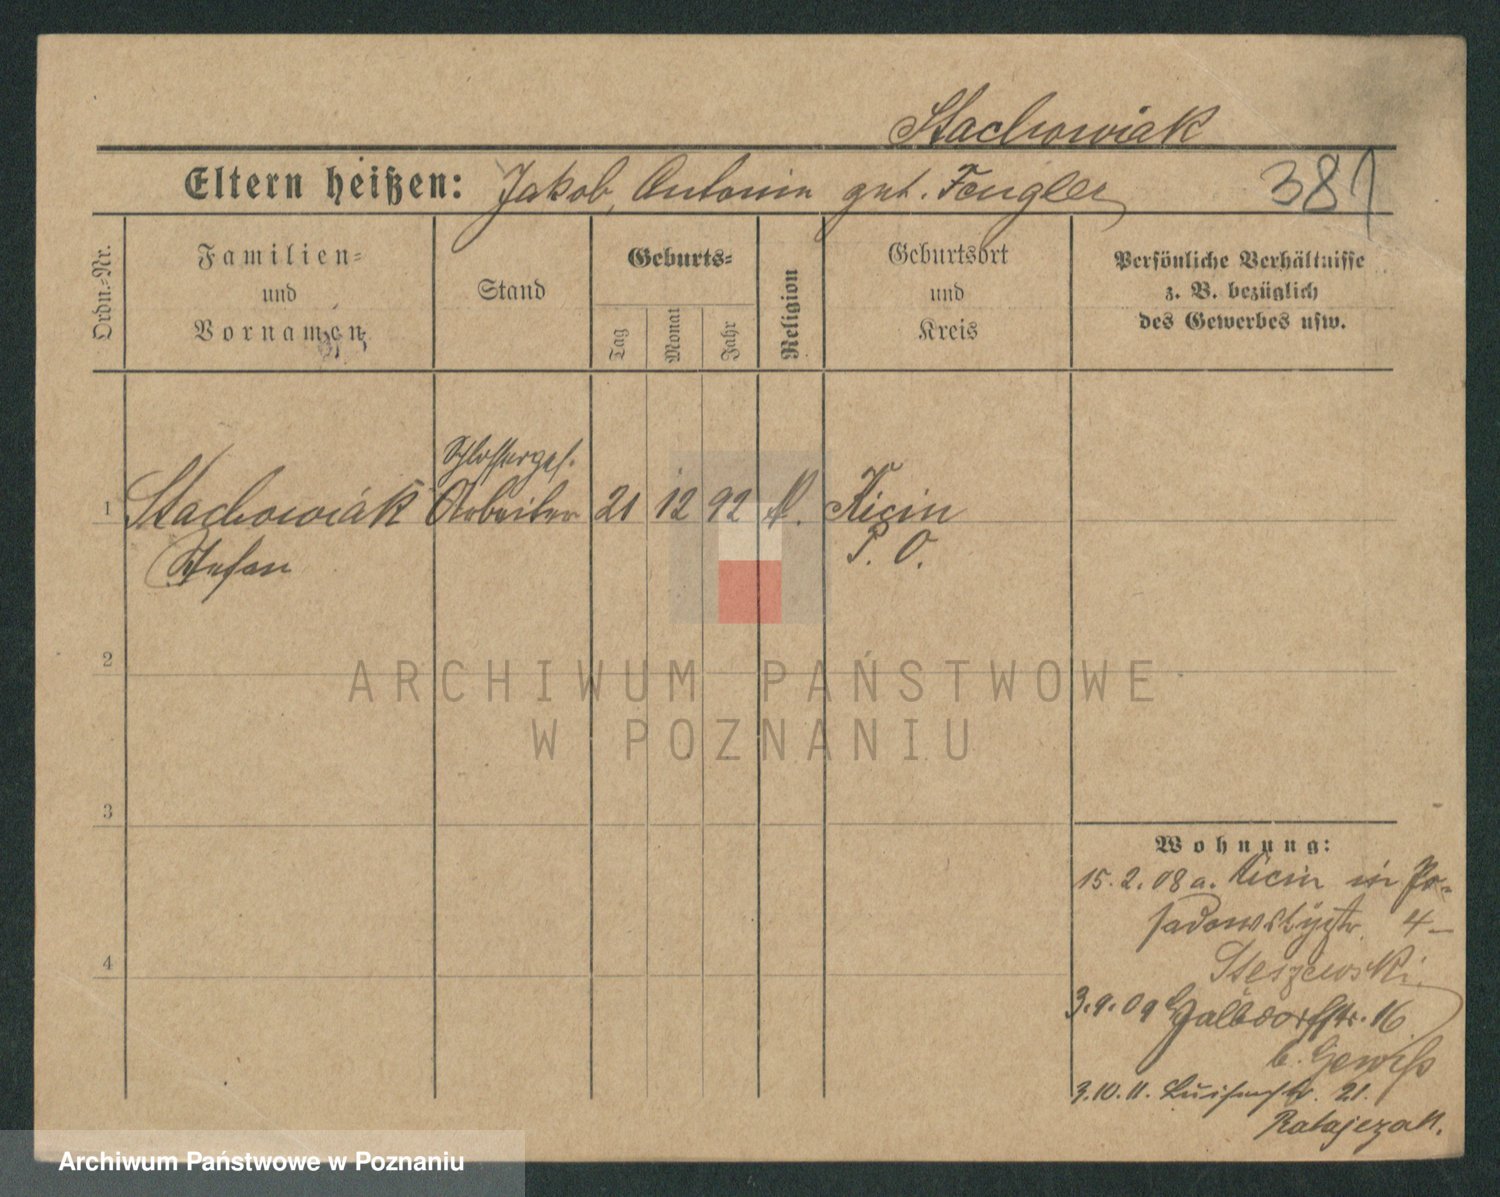 Stachowiak
Eltern heißen: Jakob, Antonin geb. Fengler
381
Ordn.-Nr.
Familien-
und
Vornamen
Stand
Geburts-
Tag
Monat
Jahr
Religion
Geburtsort
und
Kreis
Persönliche Verhältnisse
z. B. bezüglich
des Gewerbes usw.
Schlosserges.
1 Stachowiak Arbeiter 21 12 92 k. Kicin
Stefan P. O.
2
3
4
Wohnung:
15.2.08 a. Kicin in Po-
sadowskystr. 4-
Steszewski
3.9.09 Halbdorfstr. 16
b. Gewiss
3.10.11. Luisenstr. 21.
Ratajczak.
ARCHIWUM PAŃSTWOWE
W POZNANIU
Archiwum Państwowe w Poznaniu